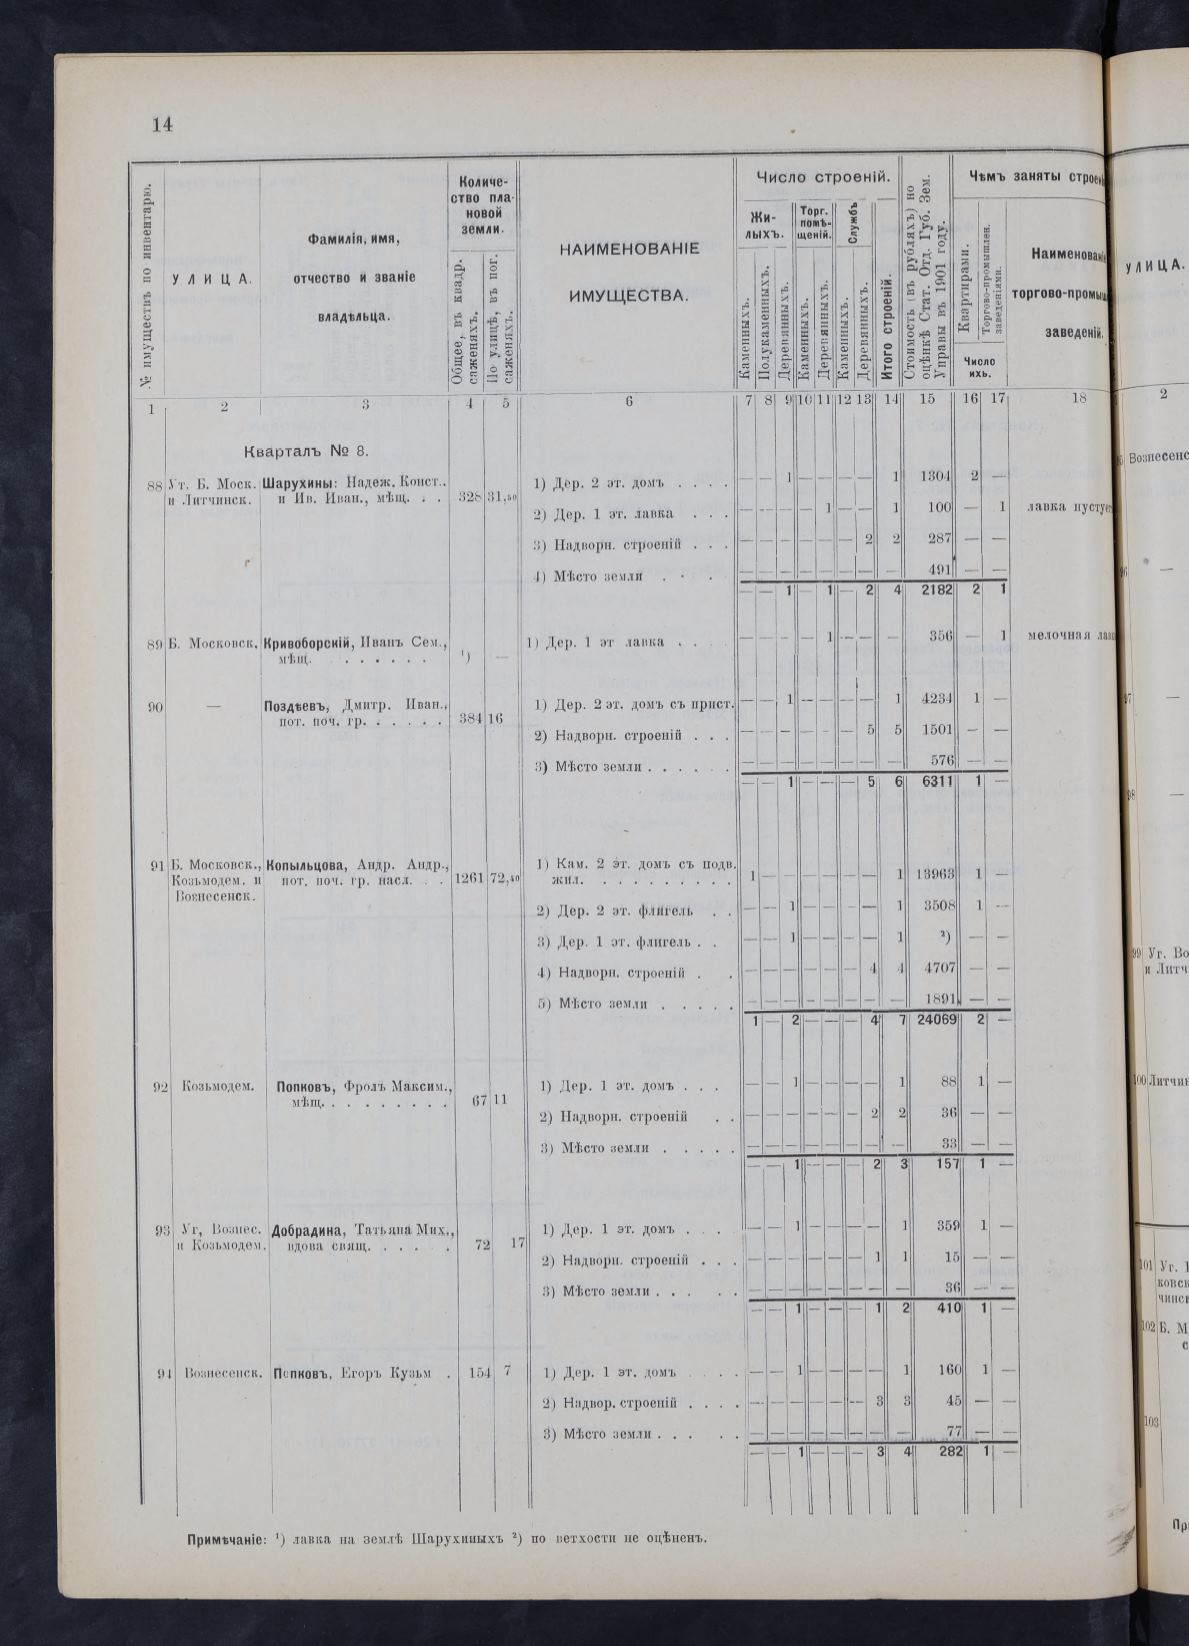 14
№ имуществъ по инвентарю.
УЛИЦА.
Фамилія, имя,
отчество и званіе
владѣльца.
Количе-
ство пла-
новой
земли.
Общее, въ квадр.
саженяхъ.
По улицѣ, въ пог.
саженяхъ.
НАИМЕНОВАНІЕ
ИМУЩЕСТВА.
Число строеній.
Жи-
лыхъ.
Торг.
помѣ-
щеній.
Службъ
Каменныхъ.
Полукаменныхъ.
Деревянныхъ.
Каменныхъ.
Деревянныхъ.
Каменныхъ.
Деревянныхъ.
Итого строеній.
Стоимость (въ рубляхъ) по
оцѣнкѣ Стат. Отд. Губ. Зем.
Управы въ 1901 году.
Чѣмъ заняты
Квартирами.
Торгово-промышлен.
заведеніями.
Число
ихъ.
торгово-
заведеній.
1 2 3 4 5 6 7 8 9 10 11 12 13 14 15 16 17 18
Кварталъ № 8.
88 Уг. Б. Моск. Шарухины: Надеж. Конст.. 1) Дер. 2 эт. домъ . . . . — — 1 — — — — 1 1304 2 —
и Литчинск. и Ив. Иван., мѣщ. . . 328 31,50
2) Дер. 1 эт. лавка . . . — — — — 1 — — 1 100 — 1 лавка
3) Надворн. строеній . . . — — — — — — 2 2 287 — —
4) Мѣсто земли . . . — — — — — — — — 491 — —
— — 1 — 1 — 2 4 2182 2 1
89 Б. Московск. Кривоборскій, Иванъ Сем., 1) Дер. 1 эт лавка . . . — — — — 1 — — — 356 — 1 мелочная
мѣщ. . . . . . . ¹) —
90 — Поздѣевъ, Дмитр. Иван., 1) Дер. 2 эт. домъ съ прист. — — 1 — — — — 1 4234 1 —
пот. поч. гр. . . . . . 384 16
2) Надворн. строеній . . . — — — — — — 5 5 1501 — —
3) Мѣсто земли . . . . . . — — — — — — — — 576 — —
— — 1 — — — 5 6 6311 1 —
91 Б. Московск., Копыльцова, Андр. Андр., 1) Кам. 2 эт. домъ съ подв.
Козьмодем. и пот. поч. гр. насл. . . 1261 72,40 жил. . . . . . . . . . 1 — — — — — — 1 13963 1 —
Вознесенск.
2) Дер. 2 эт. флигель . . — — 1 — — — — 1 3508 1 —
3) Дер. 1 эт. флигель . . — — 1 — — — — 1 ²) — —
4) Надворн. строеній . . — — — — — — 4 4 4707 — —
5) Мѣсто земли . . . . . — — — — — — — — 1891 — —
1 — 2 — — — 4 7 24069 2 —
92 Козьмодем. Попковъ, Фролъ Максим., 1) Дер. 1 эт. домъ . . . — — 1 — — — — 1 88 1 —
мѣщ. . . . . . . . . 67 11
2) Надворн. строеній . . — — — — — — 2 2 36 — —
3) Мѣсто земли . . . . . — — — — — — — — 33 — —
— — 1 — — — 2 3 157 1 —
93 Уг, Вознес. Добрадина, Татьяна Мих., 1) Дер. 1 эт. домъ . . . . — — 1 — — — — 1 359 1 —
и Козьмодем. вдова свящ. . . . . . 72 17
2) Надворн. строеній . . . — — — — — — 1 1 15 — —
3) Мѣсто земли . . . . . — — — — — — — — 36 — —
— — 1 — — — 1 2 410 1 —
94 Вознесенск. Попковъ, Егоръ Кузьм . 154 7 1) Дер. 1 эт. домъ . . . . — — 1 — — — — 1 160 1 —
2) Надвор. строеній . . . . — — — — — — 3 3 45 — —
3) Мѣсто земли . . . . . — — — — — — — — 77 — —
— — 1 — — — 3 4 282 1 —
Примѣчаніе: ¹) лавка на землѣ Шарухиныхъ ²) по ветхости не оцѣненъ.
УЛИЦА.
2
—
—
—
Уг.
100
101 Уг.
102 Б.
103